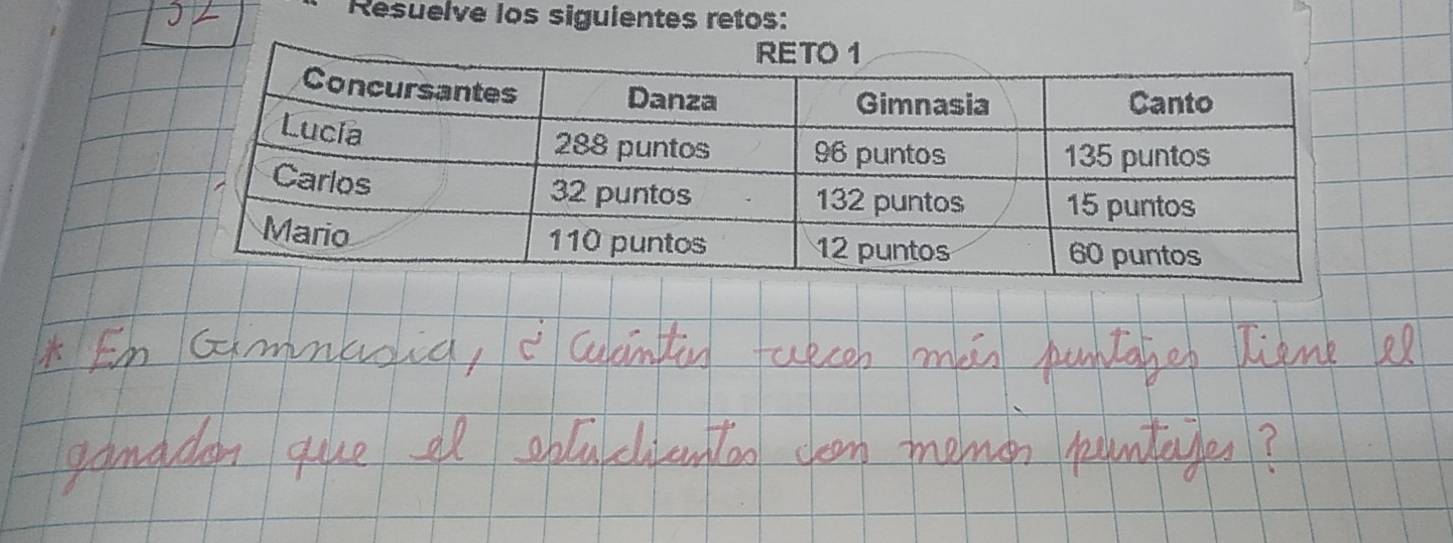 32
Resuelve los siguientes retos:
RETO 1
Concursantes Danza Gimnasia Canto
Lucía 288 puntos 96 puntos 135 puntos
Carlos 32 puntos 132 puntos 15 puntos
Mario 110 puntos 12 puntos 60 puntos
* En Gimnasia, ¿Cuántas veces más puntajes Tiene el
ganador que el estudiantes con menor puntajes?